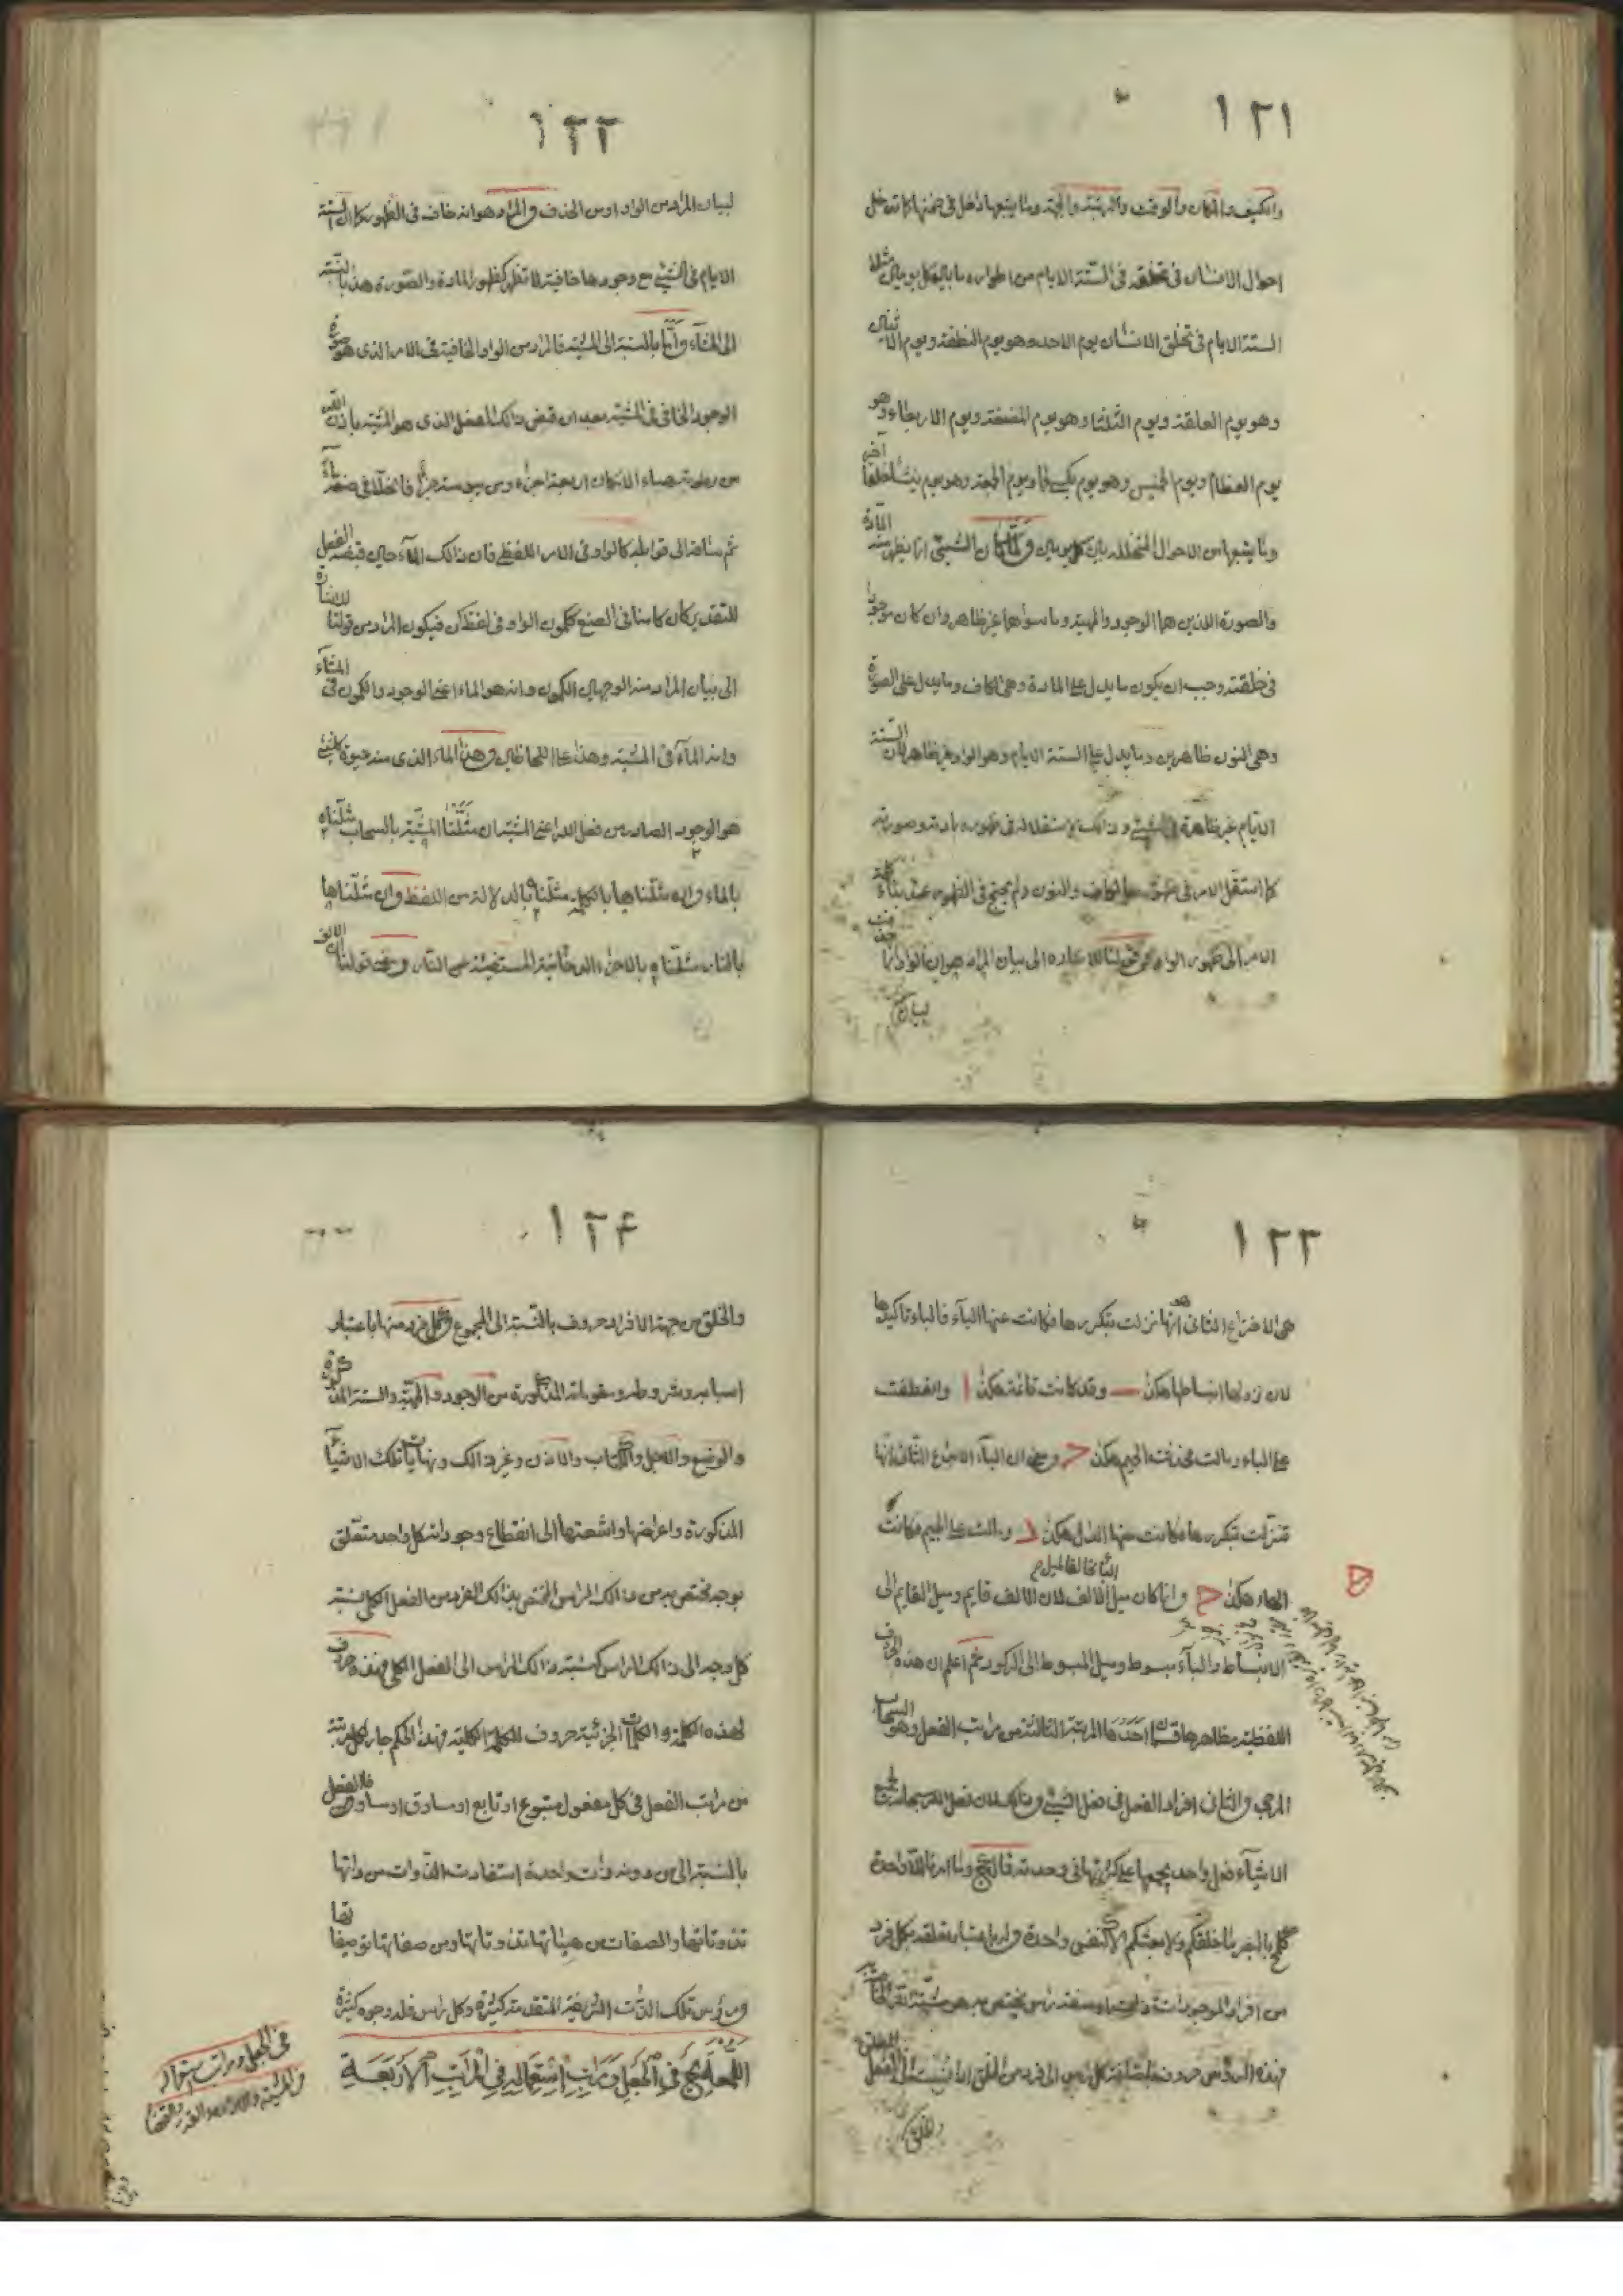 ١٢١
والكيف والمكان والوقت والرتبة والجهة وما يتبعها داخل في ضمنها كما تدخل
احوال الانسان في تخلقه في الستة الايام من اطواره ما بين كل يومين مثلا
الستة الايام في تخلق الانسان يوم الاحد وهو يوم النطفة ويوم الاثنين
وهو يوم العلقة ويوم الثلثا وهو يوم المضغة ويوم الاربعاء وهو
يوم العظام ويوم الخميس وهو يوم يكسى لحما ويوم الجمعة وهو يوم ينشأ خلقا آخر
وما يتبعها من الاحوال المتخللة بين كل يومين ولما كان الشيئ انما يظهر منه المادة
والصورة اللذين هما الوجود والمهية وما سواهما غير ظاهر وان كان موجودا
في خلقته وجب ان يكون ما يدل على المادة وهي الكاف وما يدل على الصورة
وهي النون ظاهرين وما يدل على الستة الايام وهو الواو غير ظاهر لان الستة
الايام غير ظاهرة في الشيئ وذلك لاستقلاله في ظهوره بمادته وصورته
كما استقل الامر في ظهوره بالكاف والنون ولم يحتج في الظهور عند بناء كلمة
الامر الى ظهور الواو وفي قولنا للاشاره الى بيان المراد هو ان الواو انما حذفت
لبيان
١٢٢
لبيان المراد من الواو او من الحذف والمراد هو انه خاف في الظهور كما ان الستة
الايام في الشيئ مع وجودها خافية لا تظهر كظهور المادة والصورة هذا بالنسبة
الى المشآء واما بالنسبة الى المشية فالمراد من الواو الخافية في الامر الذي هو صورة
الوجود الخافي في المشية بعد ان قبض ذلك الفعل الذي هو المشية باذن الله
من رطوبة هباء الامكان اربعة اجزاء ومن يبوسته جزأ فانحلا في صنعه ماءً
ثم ساقه الى قوابله كالواو في الامر اللفظي فان ذلك الماء حين قبضه الفعل
للتقدير كان كامنا في الصنع ككمون الواو في لفظ كن فيكون المراد من قولنا للاشارة
الى بيان المراد منه الوجهين الكمون وانه هو الماء اعني الوجود والكمون في المشآء
وانه المآء في المشية وهذا على اللحاظين وهذا الماء الذي منه حيوة كل شيئ
هو الوجود الصادر من فعل الله اعني المشية ان مثّلنا المشية بالسحاب مثّلناه
بالماء وان مثّلناها بالكلمة مثّلناه بالدلالة من اللفظ وان مثّلناها
بالنار مثّلناه بالاجزاء الدخانية المستضيئة عن النار ومعنى قولنا الالف
١٢٣
هي الاختراع الثاني انها نزلت بتكررها فكانت عنها البآء فالباء تاكيدها
لان نزولها انبساطها هكذا — وقد كانت قائمة هكذا ا وانعطفت
على الباء ومالت فحدثت الجيم هكذا > ومعنى ان البآء الاختراع الثاني انها
تنزلت بتكررها فكانت عنها الدال هكذا ومالت على الجيم فكانت
الهاء هكذا وانما كان ميل الالف لان الالف قايم وميل القايم الى
الانبساط والبآء مبسوط وميل المبسوط الى الركود ثم اعلم ان هذه الحروف
اللفظية مظاهرها قسمان احدهما المرتبة الثالثة من مراتب الفعل وهو السحاب
المزجي والثاني افراد الفعل في فعل الشيئ وذلك لان فعل الله سبحانه لجميع
الاشيآء فعل واحد يجمعها على كثرتها في وحدته قال تع وما امرنا الا واحدة
كلمح بالبصر ما خلقكم ولا بعثكم الا كنفس واحدة وله باعتبار تعلقه بكل فرد
من افراد الموجودات ذات او صفة رأس يختص به هو مشيته
فهذه الرؤس حروف باضافة كل رأس الى فرد من الخلق اذا نسبت الى الفعل
والخلق
١٢٤
والخلق من جهة الافراد حروف بالنسبة الى المجموع وكل فرد منها باعتبار
اسبابه وشروطه ومقوماته المذكورة من الوجود والمهية والستة المذكورة
والوضع والاجل والكتاب والاذن وغير ذلك ونهايات تلك الاشيآء
المذكورة واعراضها واشعتها الى انقطاع وجوداتها كل واحد متعلق
بوجه مختص به من ذلك الراس المختص بذلك الفرد من الفعل الكلي نسبة
كل وجه الى ذلك الراس كنسبة ذلك الراس الى الفعل الكلي فهذه حروف
لهذه الكلمة والكلمات الجزئية حروف للكلمة الكلية وهذا الحكم جار لكل مرتبة
من مراتب الفعل في كل مفعول متبوع او تابع او مساوق او مساو فالفعل
بالنسبة الى من دونه ذات واحدة استفادت الذوات من ذاتها
تذوتاتها والصفات من هيئاتها تذوتاتها ومن صفاتها توصيفاتها
ورؤس تلك الذات الشريفة المتقدمة كثيرة وكل راس فله وجوه كثيرة
اللمعة في الجعل ومراتب استعماله في المراتب الاربعة
في الجعل ومراتب استعماله
في المشية والارادة والقدر والقضاء